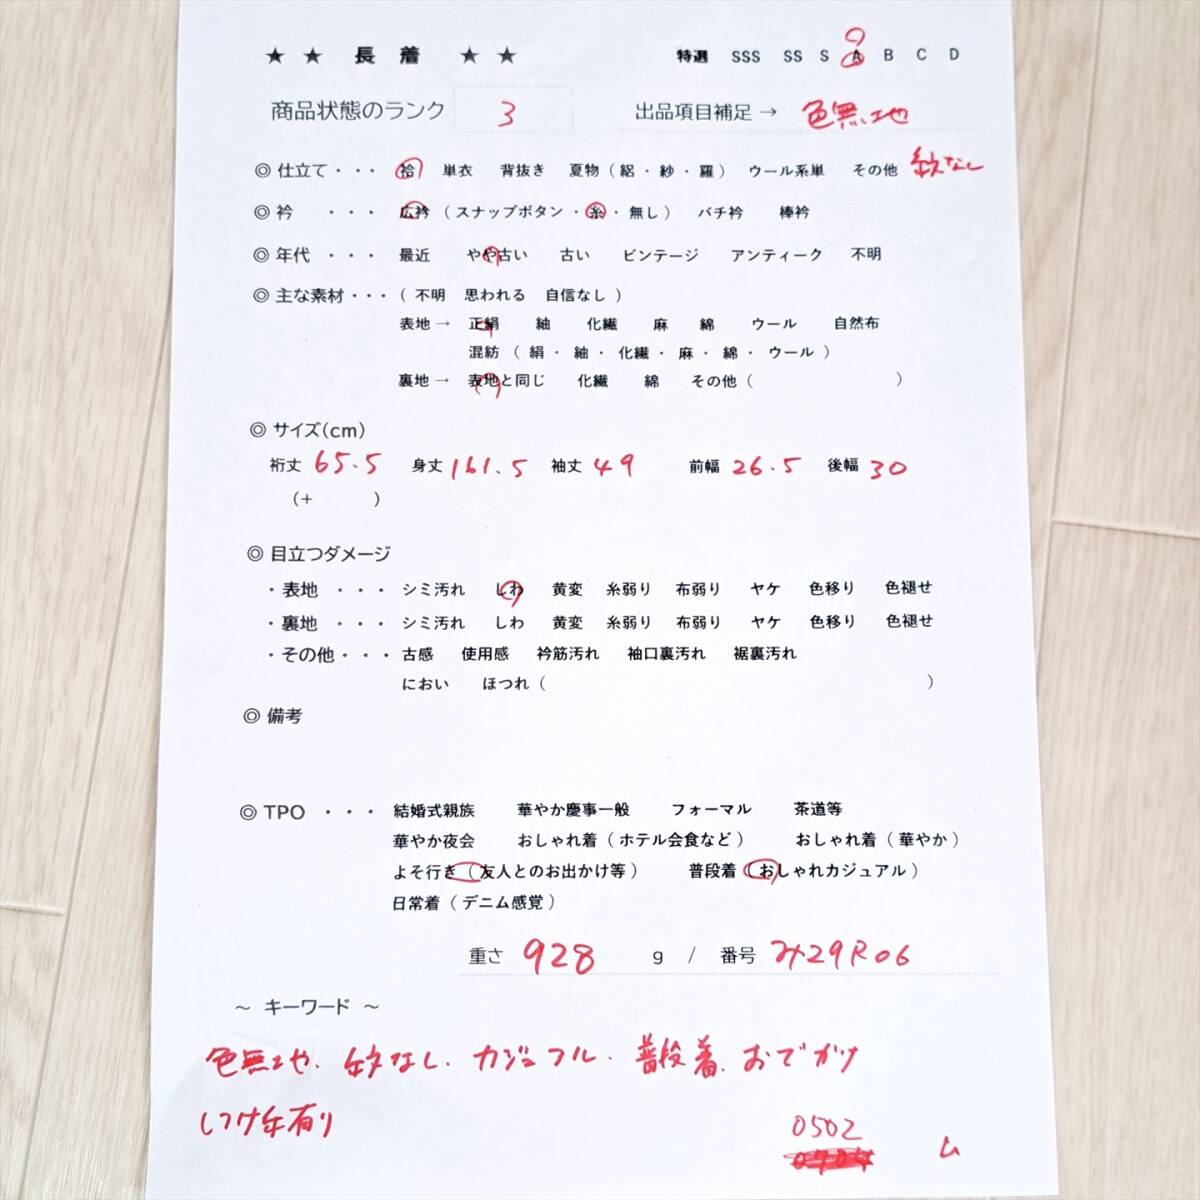 ★ ★ 長 着 ★ ★ 特選 SSS SS S A B C D
商品状態のランク 3 出品項目補足→ 色無地
◎ 仕立て・・・ 袷 単衣 背抜き 夏物(絽・紗・羅) ウール系単 その他 紋なし
◎ 衿 ・・・ 広衿(スナップボタン・糸・無し) バチ衿 棒衿
◎ 年代 ・・・ 最近 やや古い 古い ビンテージ アンティーク 不明
◎ 主な素材・・・(不明 思われる 自信なし)
表地→ 正絹 紬 化繊 麻 綿 ウール 自然布
混紡(絹・紬・化繊・麻・綿・ウール)
裏地→ 表地と同じ 化繊 綿 その他( )
◎ サイズ(cm)
裄丈 65.5 身丈 161.5 袖丈 49 前幅 26.5 後幅 30
(+ )
◎ 目立つダメージ
・表地 ・・・ シミ汚れ しわ 黄変 糸弱り 布弱り ヤケ 色移り 色褪せ
・裏地 ・・・ シミ汚れ しわ 黄変 糸弱り 布弱り ヤケ 色移り 色褪せ
・その他・・・ 古感 使用感 衿筋汚れ 袖口裏汚れ 裾裏汚れ
におい ほつれ( )
◎ 備考
◎ TPO ・・・ 結婚式親族 華やか慶事一般 フォーマル 茶道等
華やか夜会 おしゃれ着(ホテル会食など) おしゃれ着(華やか)
よそ行き(友人とのお出かけ等) 普段着(おしゃれカジュアル)
日常着(デニム感覚)
重さ 928 g / 番号 み29R06
～ キーワード ～
色無地、紋なし、カジュアル、普段着、おでかけ
しつけ糸有り
0502
ム